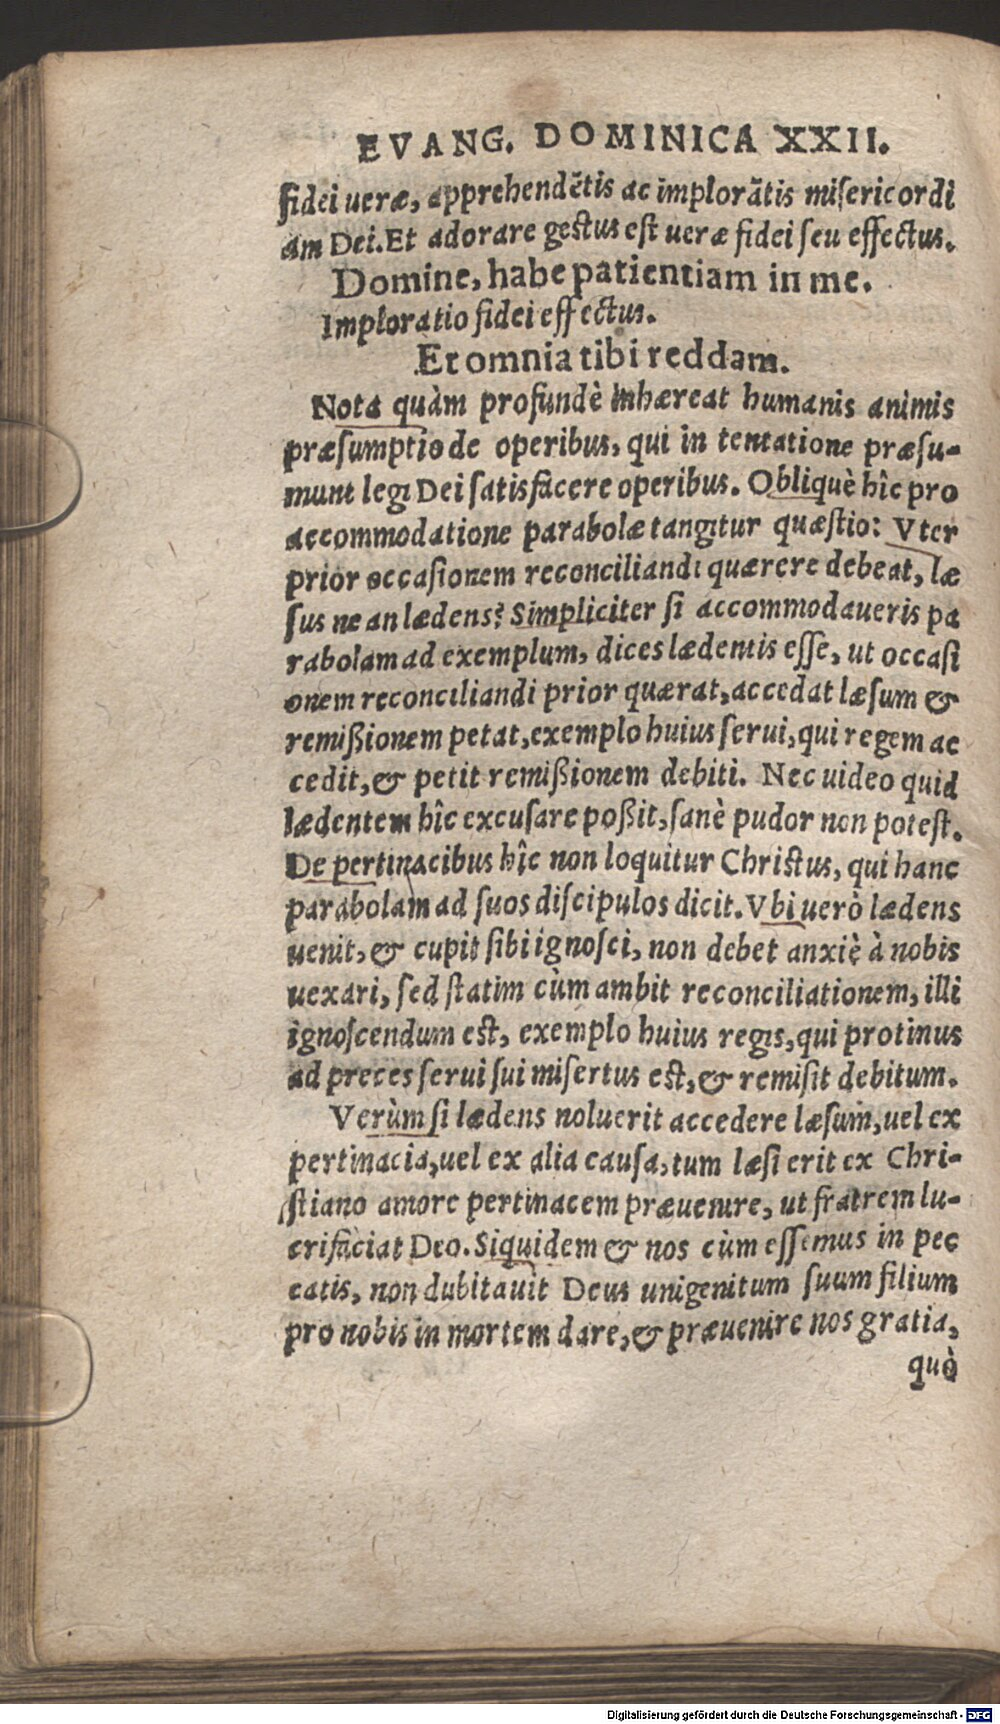 EVANG. DOMINICA XXII.
fidei ueræ, apprehendẽtis ac implorãtis miſericordi
am Dei. Et adorare geſtus eſt ueræ fidei ſeu effectus.
Domine, habe patientiam in me.
Imploratio fidei effectus.
Et omnia tibi reddam.
Nota quàm profundè inhæreat humanis animis
præſumptio de operibus, qui in tentatione præſu-
munt legi Dei ſatisfacere operibus. Obliquè hîc pro
accommodatione parabolæ tangitur quæſtio: Vter
prior occaſionem reconciliandi quærere debeat, læ
ſus ne an lædens? Simpliciter ſi accommodaueris pa
rabolam ad exemplum, dices lædentis eſſe, ut occaſi
onem reconciliandi prior quærat, accedat læſum &
remißionem petat, exemplo huius ſerui, qui regem ac
cedit, & petit remißionem debiti. Nec uideo quid
lædentem hîc excuſare poßit, ſanè pudor non poteſt.
De pertinacibus hîc non loquitur Chriſtus, qui hanc
parabolam ad ſuos diſcipulos dicit. Vbi uerò lædens
uenit, & cupit ſibi ignoſci, non debet anxiè à nobis
uexari, ſed ſtatim cùm ambit reconciliationem, illi
ignoſcendum eſt, exemplo huius regis, qui protinus
ad preces ſerui ſui miſertus eſt, & remiſit debitum.
Verùm ſi lædens noluerit accedere læſum, uel ex
pertinacia, uel ex alia cauſa, tum læſi erit ex Chri-
ſtiano amore pertinacem præuenire, ut fratrem lu-
crifaciat Deo. Siquidem & nos cùm eſſemus in pec
catis, non dubitauit Deus unigenitum ſuum filium
pro nobis in mortem dare, & præuenire nos gratia,
quò
Digitalisierung gefördert durch die Deutsche Forschungsgemeinschaft - DFG